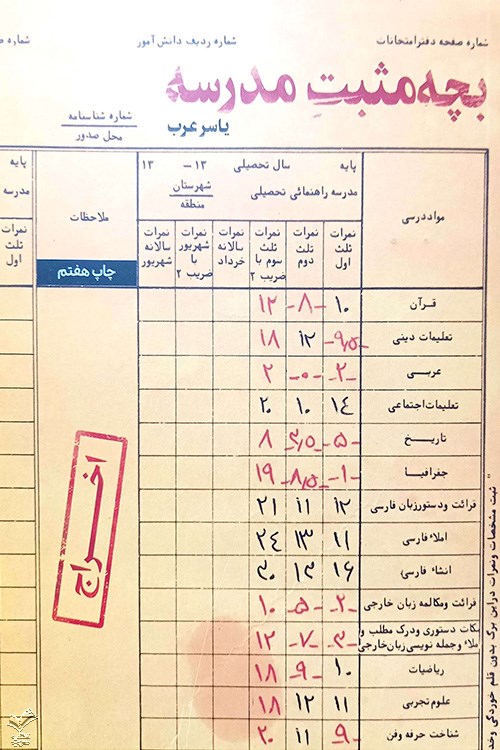 شماره صفحه دفتر امتحانات
شماره ردیف دانش آموز
شماره ص
بچه مثبتِ مدرسه
یاسر عرب
شماره شناسنامه
محل صدور
مواد درسی
پایه سال تحصیلی ۱۳ – ۱۳
مدرسه راهنمائی تحصیلی شهرستان
منطقه
نمرات ثلث اول
نمرات ثلث دوم
نمرات ثلث سوم با ضریب ۲
نمرات سالانه خرداد
نمرات شهریور با ضریب ۲
نمرات سالانه شهریور
ملاحظات
پایه
مدرسه
نمرات ثلث اول
چاپ هفتم
قرآن ۱۰ -۸- ۱۲
تعلیمات دینی -۹٫۵- ۱۲ ۱۸
عربی -۲- -۰- ۲
تعلیمات اجتماعی ۱۴ ۱۰ ۲۰
تاریخ -۵- -۳٫۵- ۸
جغرافیا -۱- -۸٫۵- ۱۹
قرائت و دستور زبان فارسی ۱۲ ۱۱ ۲۱
املاء فارسی ۱۱ ۱۳ ۲۴
انشاء فارسی ۱۶ ۱۳ ۳۰
قرائت و مکالمه زبان خارجی -۲- -۵- ۱۰
نکات دستوری و درک مطلب و املاء و جمله نویسی زبان خارجی -۳- -۷- ۱۲
ریاضیات ۱۰ -۹- ۱۸
علوم تجربی ۱۱ ۱۲ ۱۸
شناخت حرفه و فن -۹- ۱۱ ۲۰
اخراج
ثبت مشخصات و نمرات در این برگ بدون قلم خوردگی